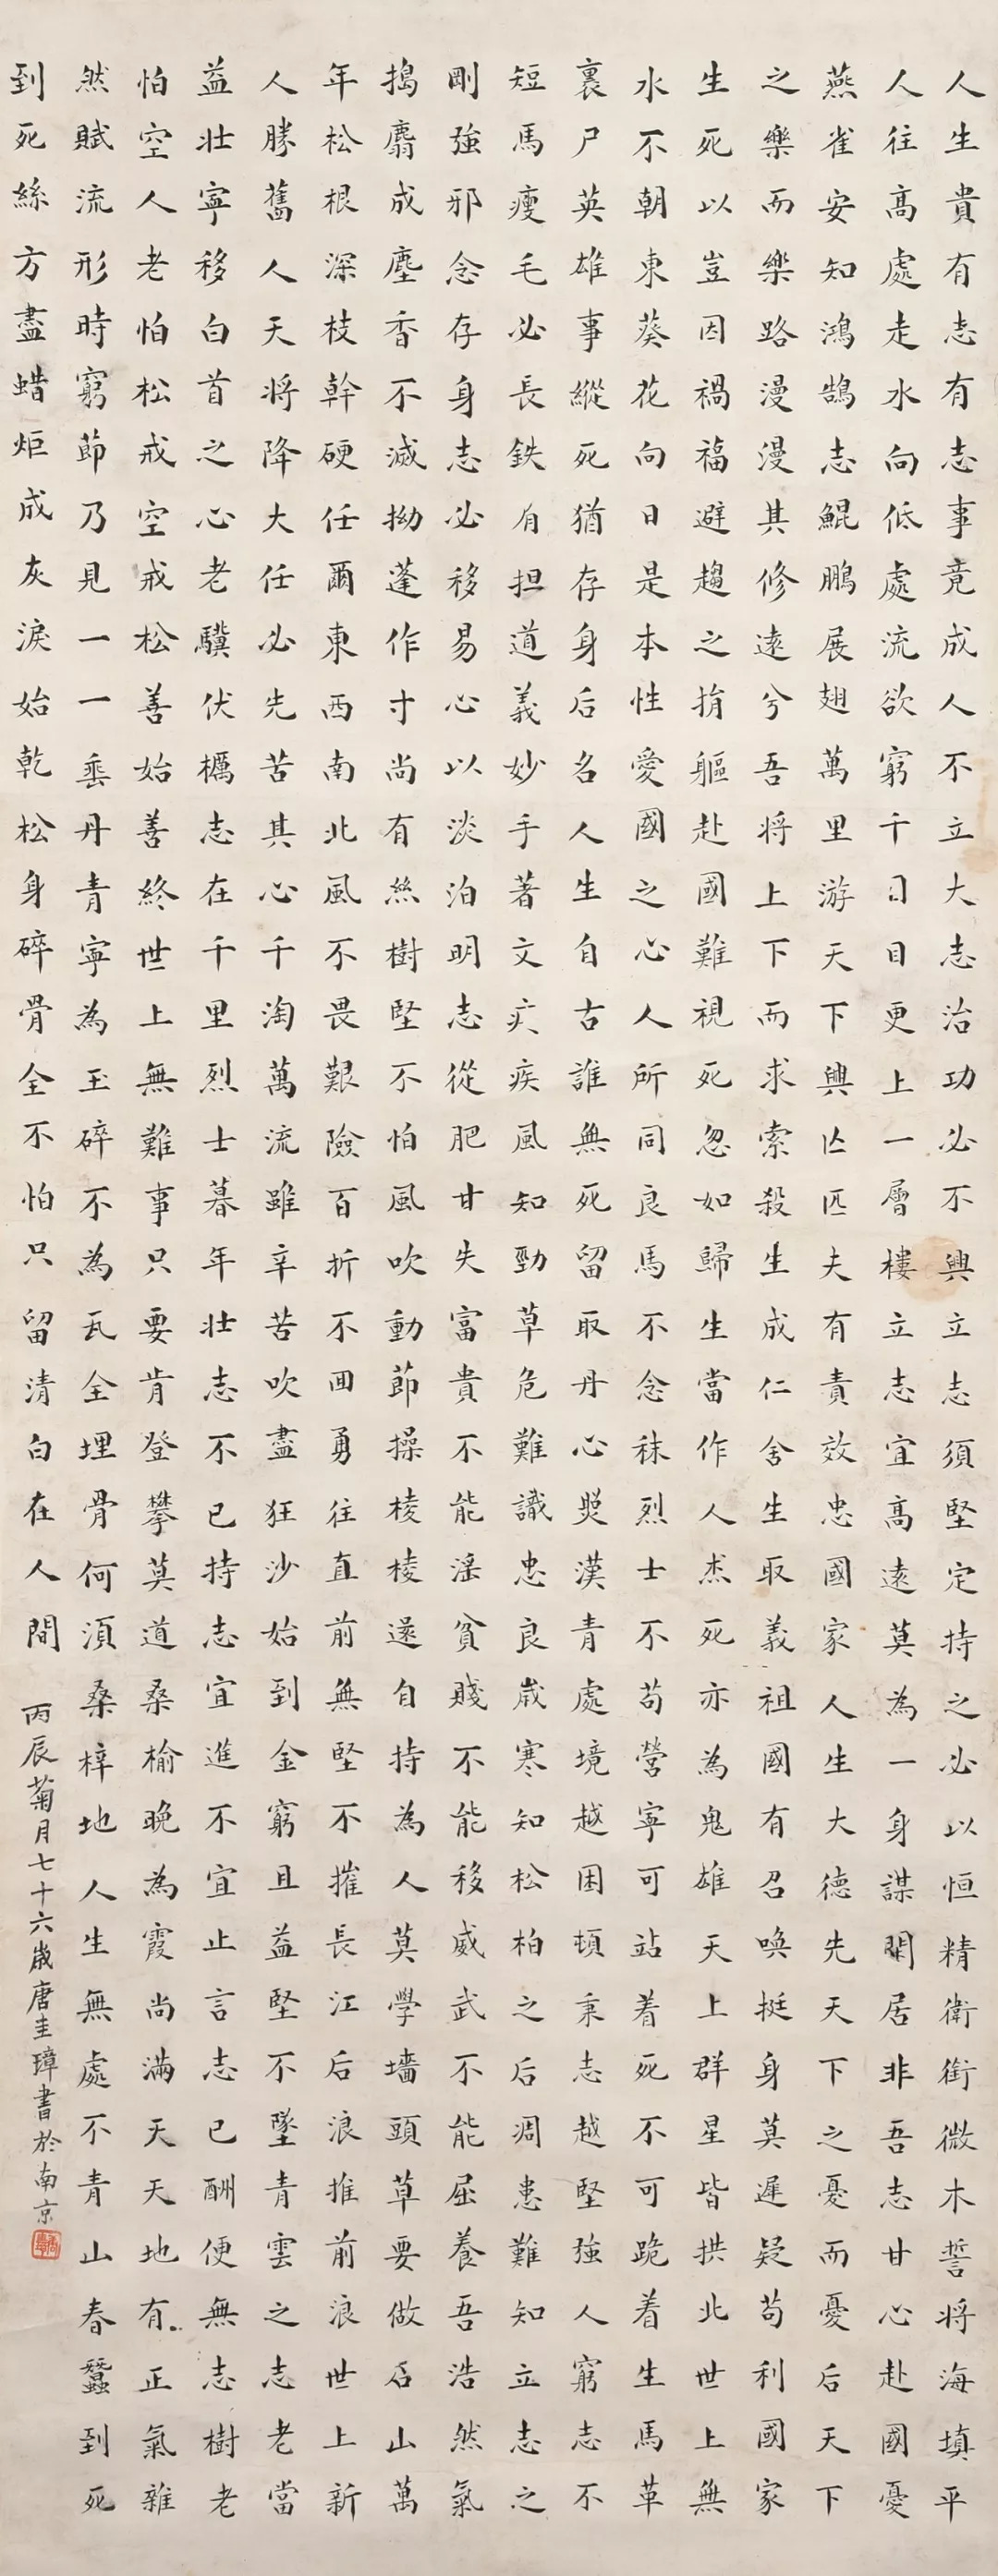 人生貴有志有志事竟成人不立大志治功必不興立志須堅定持之必以恒精衛銜微木誓將海填平
人往高處走水向低處流欲窮千目更上一層樓立志宜高遠莫為一身謀閑居非吾志甘心赴國憂
燕雀安知鴻鵠志鯤鵬展翅萬里游天下興亡匹夫有責效忠國家人生大德先天下之憂而憂后天下
之樂而樂路漫漫其修遠兮吾將上下而求索殺生成仁舍生取義祖國有召喚挺身莫遲疑苟利國家
生死以豈因禍福避趨之捐軀赴國難視死忽如歸生當作人杰死亦為鬼雄天上群星皆拱北世上無
水不朝東葵花向日是本性愛國之心人所同良馬不念秣烈士不苟營寧可站着死不可跪着生馬革
裹尸英雄事縱死猶存身后名人生自古誰無死留取丹心照漢青處境越困頓秉志越堅強人窮志不
短馬瘦毛必長鉄肩担道義妙手著文疾風知勁草危難識忠良歲寒知松柏之后凋患難知立志之
剛強邪念存身志必移易心以淡泊明志從肥甘失富貴不能淫貧賤不能移威武不能屈養吾浩然氣
搗麝成塵香不滅拗蓮作寸尚有絲樹堅不怕風吹動節操棱棱還自持為人莫學墻頭草要做石山萬
年松根深枝幹硬任爾東西南北風不畏艱險百折不回勇往直前無堅不摧長江后浪推前浪世上新
人勝舊人天將降大任必先苦其心千淘萬流雖辛苦吹盡狂沙始到金窮且益堅不墜青雲之志老當
益壯寧移白首之心老驥伏櫪志在千里烈士暮年壯志不已持志宜進不宜止言志已酬便無志樹老
怕空人老怕松戒空戒松善始善終世上無難事只要肯登攀莫道桑榆晚為霞尚滿天天地有正氣雜
然賦流形時窮節乃見一一垂丹青寧為玉碎不為瓦全埋骨何須桑梓地人生無處不青山春蠶到死
到死絲方盡蜡炬成灰淚始乾松身碎骨全不怕只留清白在人間
丙辰菊月七十六歲唐圭璋書於南京